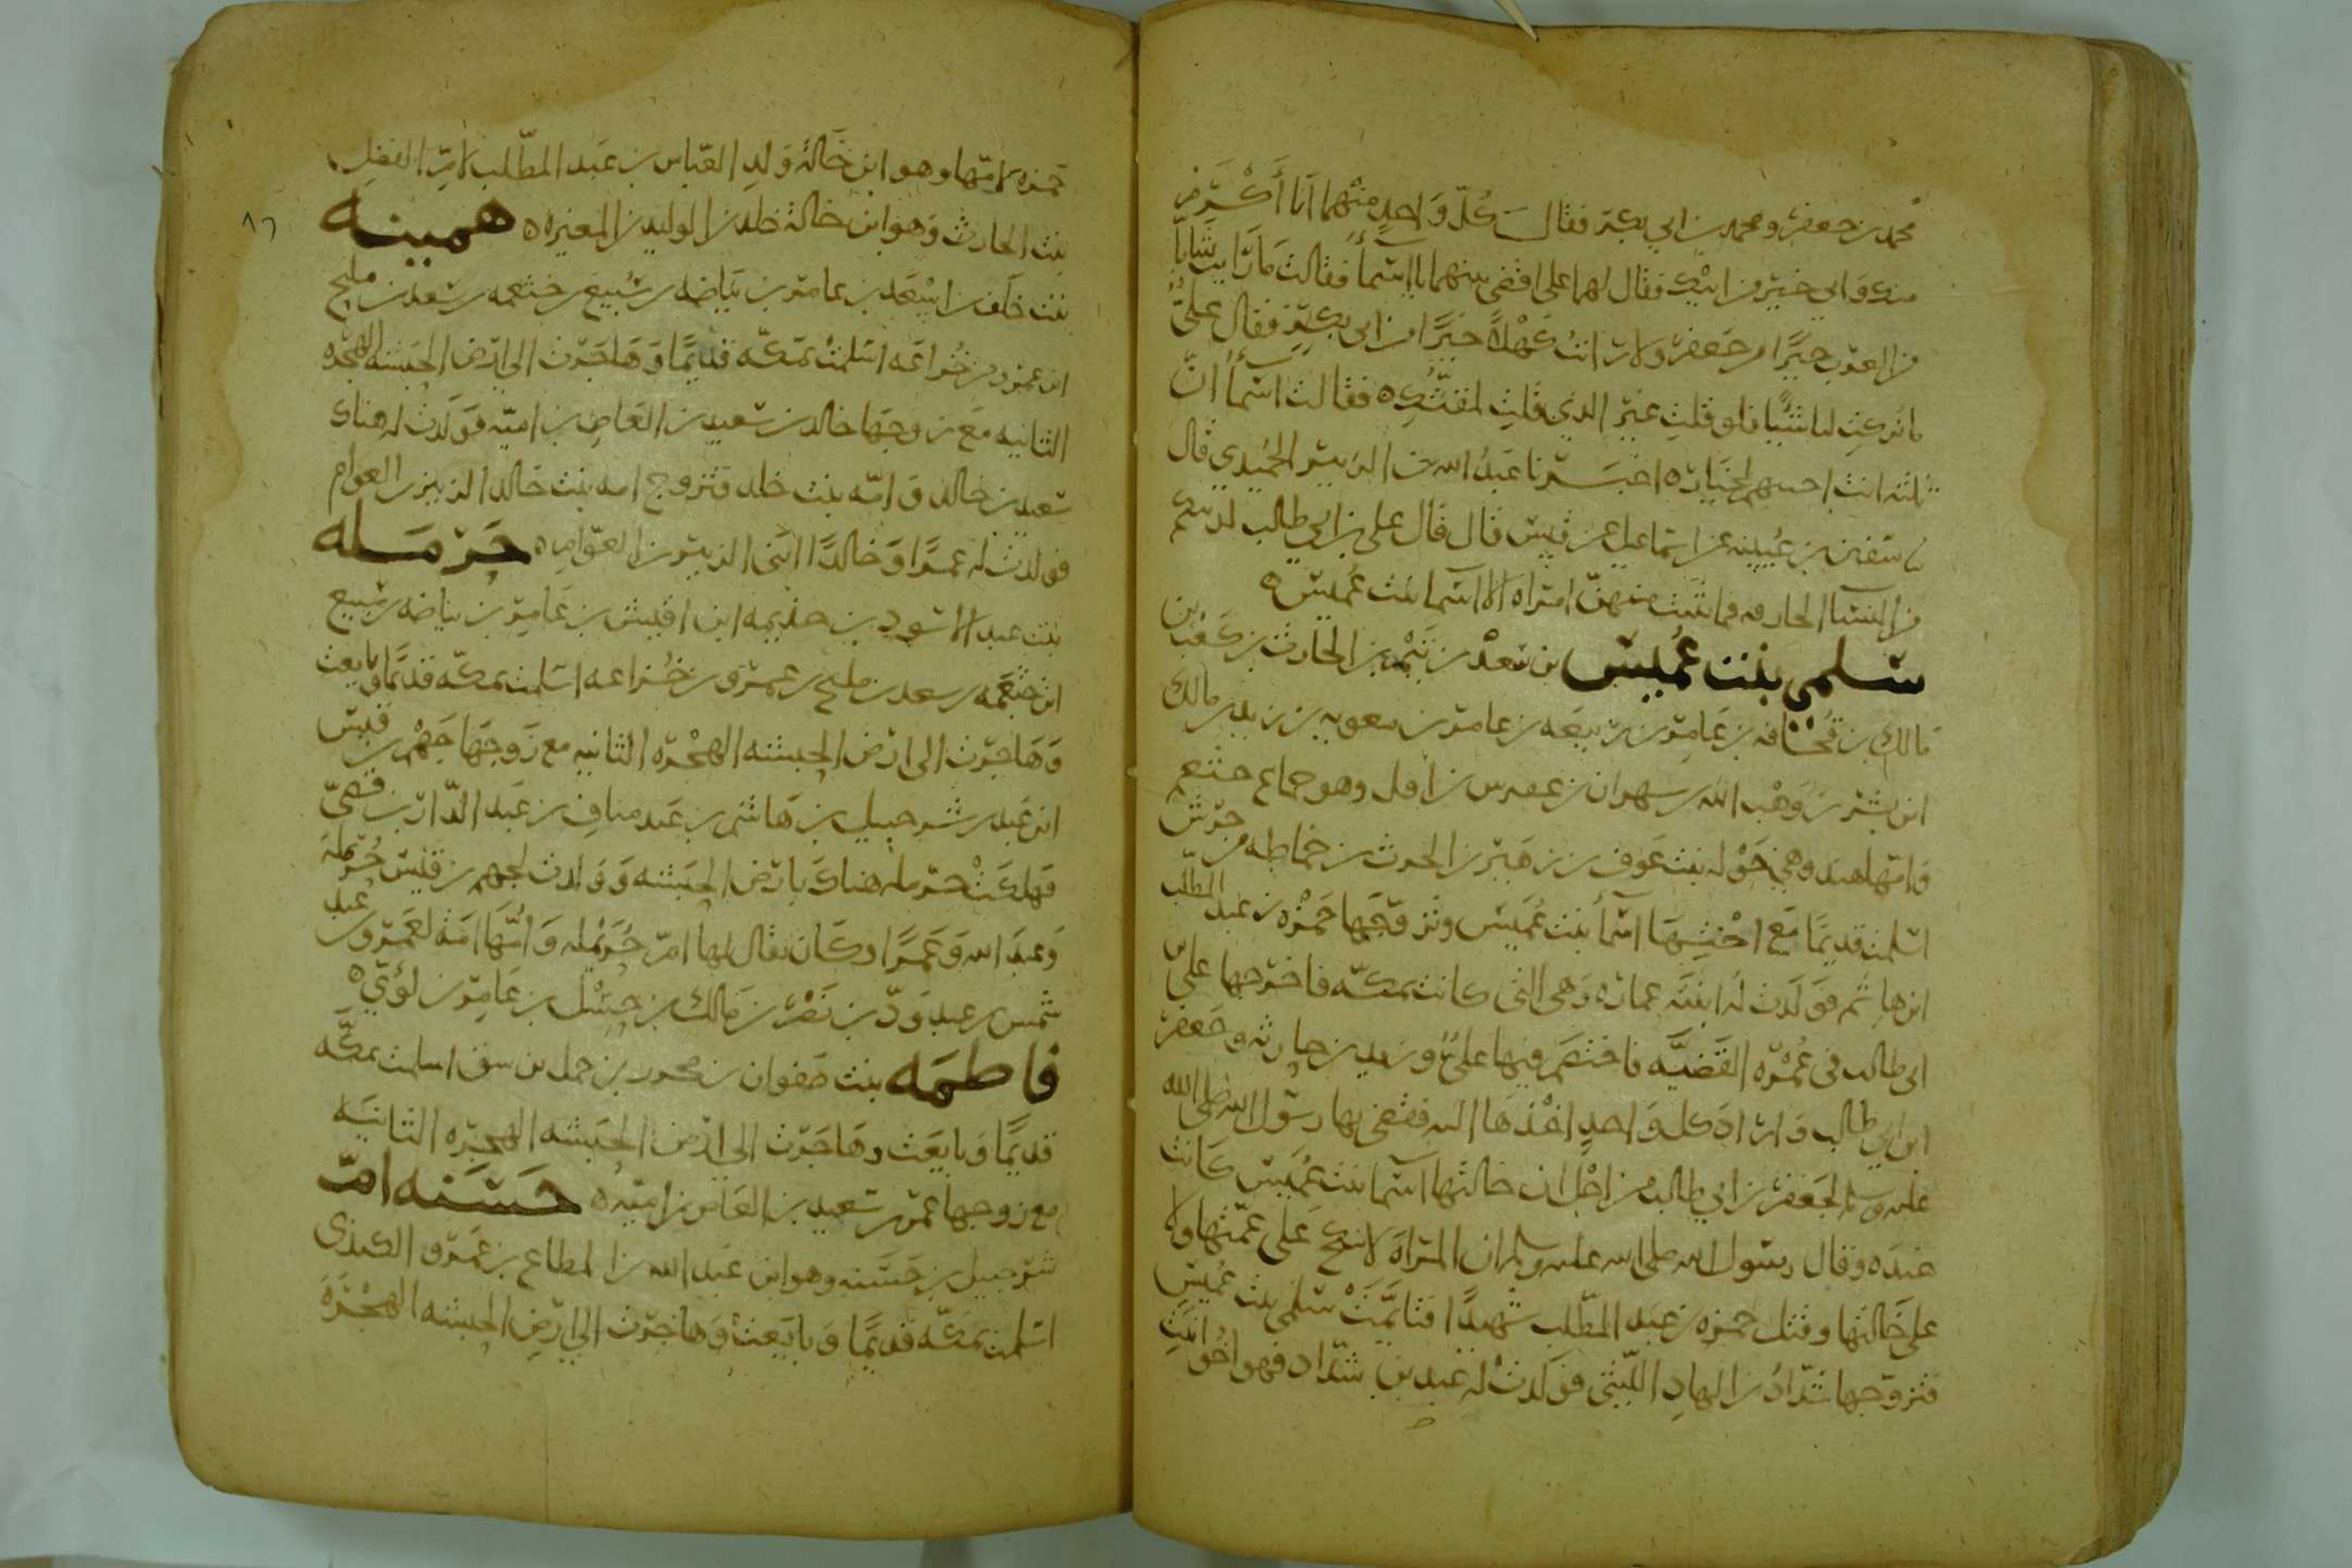 محمد بن جعفر ومحمد بن ابي بكر فقال كُلّ وَاحدٍ منْهما اَنا أَكْرَم
منك وَابي خيرٌ من ابيك فقال لهما علي اقضي بينهما يا اسْماءُ فقالت مَا رَايتُ شابًا
من العرَب خيرًا من جَعفر ولا رَايتُ كَهْلاً خيرًا من ابي بكرٍ فقال عليٌّ
ما تركتِ لنا شيًا ولو قلتِ غير الذي قلتِ لمقتُّكِ ٥ فقالت اسْماءُ انّ
ثلثه انت اخسهم لخيار ٥ اخبَرنا عَبدُ الله بن الزبير الحُميدي قال
سفين بن عُيينه عن اسماعيل عن قيس قال قال علي بن ابي طالب
من النسَا الحارقه فما ثبتت منهنّ امراه الا اسْما بنت عُميس ٥
سَلمى بنت عُميس بن سَعْد بن تَيْم بن الحارث بن كَعْب بن
مالك بن قُحَافه بن عَامِر بن رَبيعَه بن عامر بن معويه بن زيد بن مالك
ابن بشر بن وَهْب الله بن شهران بن عفرس بن افل وهو جماع خثعم
وَامّها هند وهي خَوْله بنت عَوف بن زهَير بن الحرث بن حماطه من جُرَش
اسْلمت قديمًا مَع اختِها اسْماء بنت عُمَيس وتزوّجَها حَمْزه بن عَبد المطّلب
ابن هاشم فوَلَدت لهُ ابنَتَه عمارَه وَهي التي كانت بمكّه فاخرَجها علي بن
ابي طالب في عُمْرَه القَضيّه فاختصَم فيها عليٌّ وزيد بن حارثه وجَعفر
ابن ابي طالب وَارَادَ كل وَاحدٍ اخْذَها اليه فقضى بها رسول الله صلى الله
عليه وسلم لجَعفر بن ابي طالب من اجل ان خالتها اسْما بنت عُمَيس كَانت
عندَه وقال رسول الله صلى الله عليه وسلم ان المرَاه لا تنكح عَلى عمّتها ولا
على خَالتها وقتل حمزه بن عَبد المطّلب شهيدًا فتايَّمَتْ سَلمى بنت عُميس
فتزوّجها شَدّادُ بن الهادِ اللّيثي فوَلَدتْ له عَبد بن شدّاد فهو اخو ابنَتِ
حَمزه لامّها وهو ابن خَالَة وَلدِ العَبّاس بن عَبد المطّلب لامّ الفضلِ
بنت الحارث وَهوَ ابن خالة خلد بن الوليد بن المغيره ٥ همينه
بنت خلَف بن اسْعَد بن عامر بن بَيَاضه بن سُبيع بن خثعمه بن سَعد بن مليح
ابن عمرو من خُزاعَه اسْلمَتْ بمَكّه قديمًا وَهَاجَرت الى ارض الحَبشه الهجره
الثانيه مَع زوجَها خالد بن سَعيد بن العَاص بن اميّه فوَلَدت له هناك
سَعيد بن خالد وَ امَه بنت خلد فتزوج امه بنت خالد الزبير بن العوام
فوَلدت له عمرًا وَ خالدًا ابنَي الزبير بن العوّام ٥ حَرْمَله
بنت عبد الاسْود بن جذيمه ابن اقيش بن عَامِر بن بياضه بن سُبيع
ابن جثعَمه بن سعد بن مليح بن عمرو من خُزاعه اسْلمت بمكّه قديمًا وبايَعت
وَهَاجرَت الى ارض الحبشه الهجْرَه الثانيه مع زَوجهَا جَهْم بن قيس
ابن عَبد بن شرحبيل بن هَاشم بن عَبد مناف بن عَبد الدّار بن قصَيّ
فهلكَتْ حَرمله هناكَ بارض الحبَشه وَوَلدت لجهم بن قيس حُرَيمله
وَعبدَ الله وَعَمرًا وكَان يقال لها امّ حُرَيْمله وَ اُمّهَا امَة لعَمرو بن عَبد
شمس بن عَبد وَدّ بن نَصْر بن مَالك بن حِسْل بن عَامِر بن لؤيّ ٥
فاطمَه بنت صَفوان بن محرث بن حمل بن شق اسلمت بمكّه
قديمًا وَبايَعَت وهَاجَرَت الى ارض الحَبشه الهجرَه الثانيه
مع زوجها عَمرو بن سَعيد بن العَاص بن اميّه ٥ حَسَنه امّ
شرحبيل بن حَسَنه وهو ابن عَبد الله بن المطاع بن عَمرو الكندي
اسْلمت بمَكّه قديمًا وَبايَعتْ وَهاجَرَت الى ارضِ الحبشه الهجْرَهَ